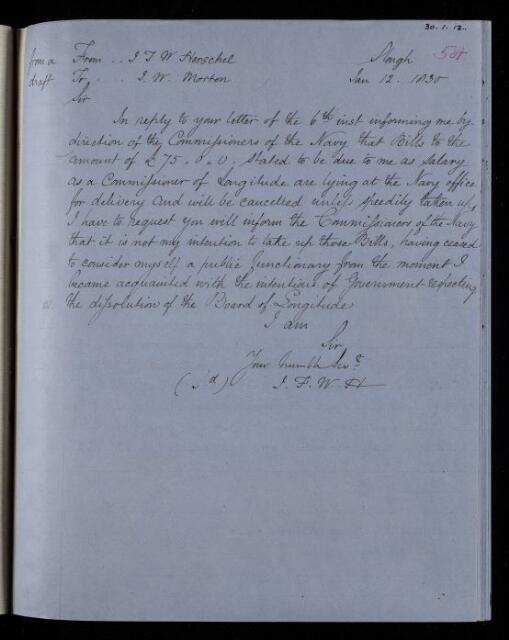 30.1.12.
from a From .. J F W Herschel Slough 501
draft To, . . J. W. Morton Jan 12. 1830
Sir
In reply to your letter of the 6th inst informing me by
direction of the Commissioners of the Navy that Bills to the
amount of £75.0.0. stated to be due to me as Salary
as a Commissioner of Longitude are lying at the Navy office
for delivery and will be cancelled unless speedily taken up,
I have to request you will inform the Commissioners of the Navy
that it is not my intention to take up those Bills, having ceased
to consider myself a public functionary from the moment I
became acquainted with the intentions of Government respecting
the dissolution of the Board of Longitude
I am
Sir
Your humble Servt.
(s'd) J. F. W. H